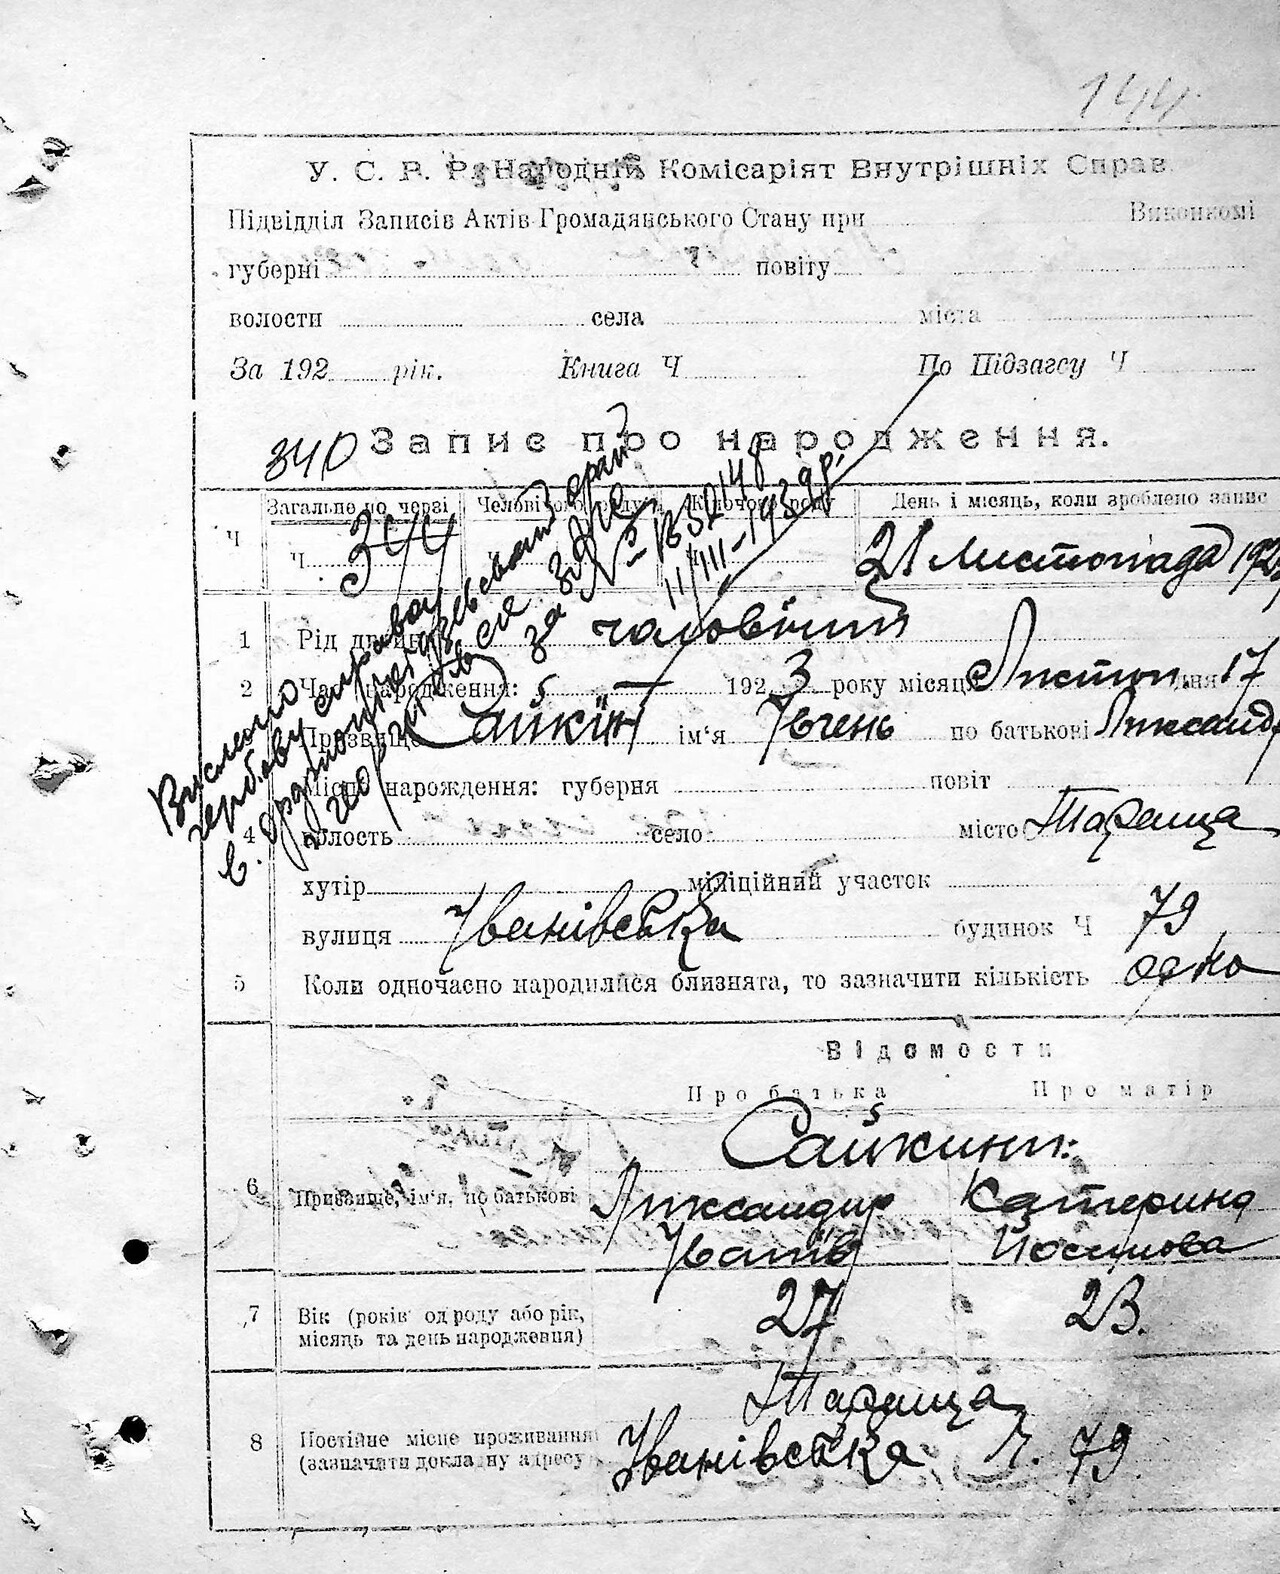 144
У. С. Р. Р. Народній Комісаріят Внутрішніх Справ
Підвідділ Записів Актів Громадянського Стану при Виконкомі
губерні повіту
волости села міста
За 192 рік. Книга Ч По Підзагсу Ч
340 Запис про народження.
Загальне по черзі Човового роду Жіночого роду День і місяць, коли зроблено запис
Ч Ч 344 21 Листопада 192
Вислано
гербову справку
в
за № 1352148
11/III-1939р.
1 Рід дитини чоловічий
2 Час народження: 1923 року місяця Листоп. дня 17
Прозвище Сайкін ім'я Івгень по батькові Лександр
Місце народження: губерня повіт
4 волость село місто Тараща
хутір міліційний участок
вулиця Іванівська будинок Ч 79
5 Коли одночасно народилися близнята, то зазначити кількість одно
Відомости
Про батька Про матір
Сайкини:
6 Призвище, ім'я, по батькові Лександир Катерина
Іванів Йосипова
7 Вік (років од роду або рік, місяць та день народження) 27 23.
Тараща
8 Постійне місце проживання (зазначити докладну адресу) Іванівська Ч. 79